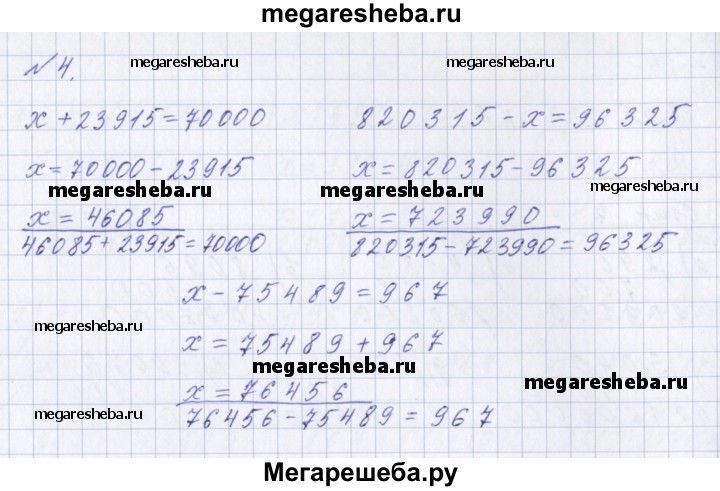 megaresheba.ru
№4.
megaresheba.ru
megaresheba.ru
x + 23915 = 70000
820315 - x = 96325
x = 70000 - 23915
x = 820315 - 96325
megaresheba.ru
megaresheba.ru
megaresheba.ru
x = 46085
x = 723990
46085 + 23915 = 70000
820315 - 723990 = 96325
x - 75489 = 967
megaresheba.ru
x = 75489 + 967
megaresheba.ru
megaresheba.ru
x = 76456
megaresheba.ru
76456 - 75489 = 967
Мегарешеба.ру